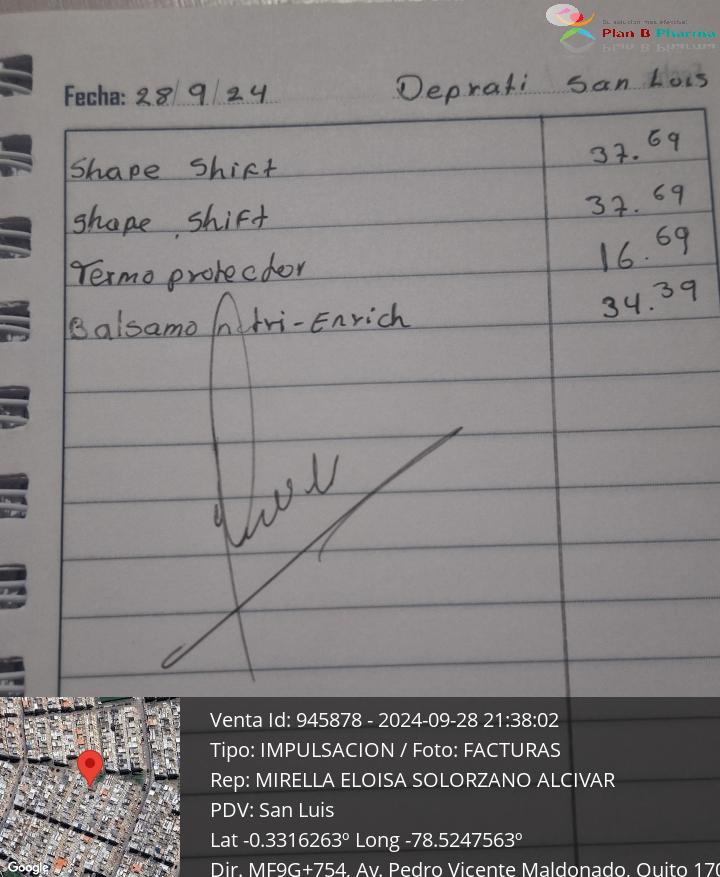 Su solucion mas efectiva!
Plan B Pharma
Fecha: 28/9/24 Deprati San Luis
Shape Shift 37.69
shape shift 37.69
Termo protector 16.69
Balsamo ntri-Enrich 34.39
Venta Id: 945878 - 2024-09-28 21:38:02
Tipo: IMPULSACION / Foto: FACTURAS
Rep: MIRELLA ELOISA SOLORZANO ALCIVAR
PDV: San Luis
Lat -0.3316263º Long -78.5247563º
Dir. MF9G+754, Av. Pedro Vicente Maldonado, Quito 170
Google